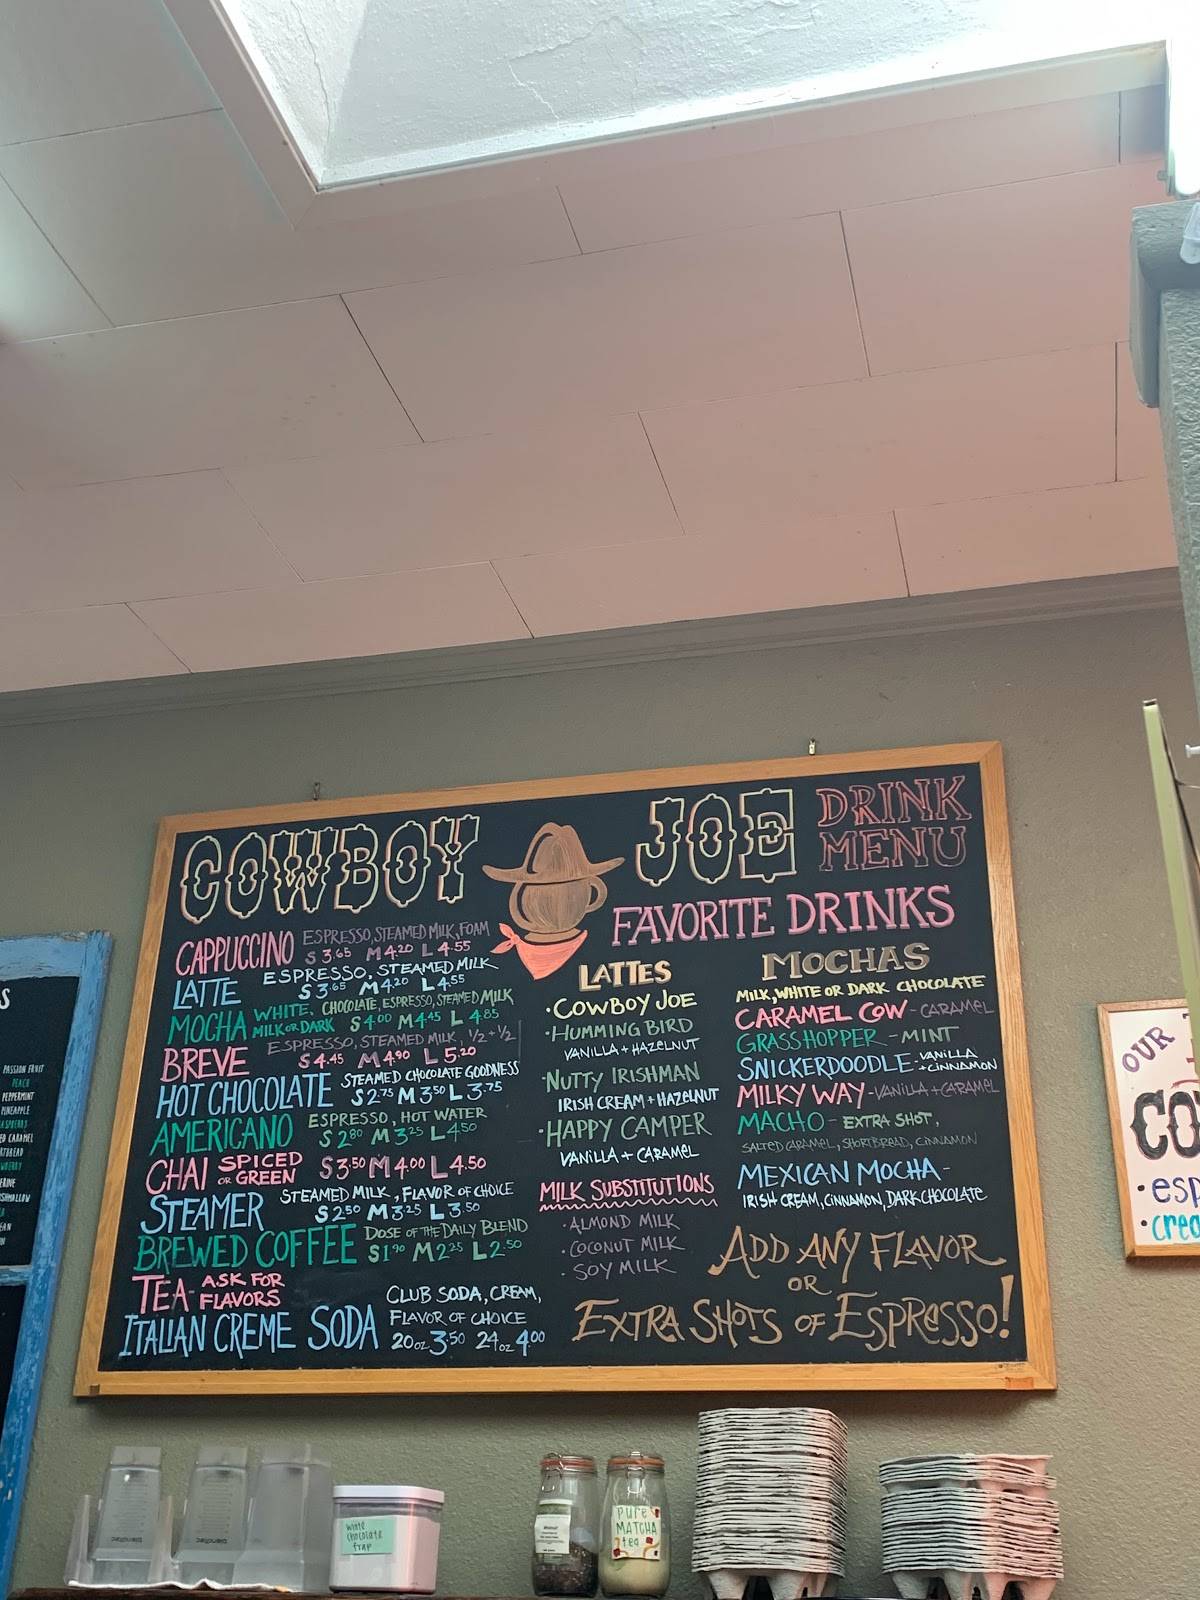 COWBOY JOE DRINK MENU
CAPPUCCINO ESPRESSO, STEAMED MILK, FOAM
S 3.65 M 4.20 L 4.55
LATTE ESPRESSO, STEAMED MILK
S 3.65 M 4.20 L 4.55
MOCHA WHITE, CHOCOLATE, ESPRESSO, STEAMED MILK
MILK OR DARK S 4.00 M 4.45 L 4.85
BREVE ESPRESSO, STEAMED MILK, 1/2 + 1/2
S 4.45 M 4.90 L 5.20
HOT CHOCOLATE STEAMED CHOCOLATE GOODNESS
S 2.75 M 3.50 L 3.75
AMERICANO ESPRESSO, HOT WATER
S 2.80 M 3.25 L 4.50
CHAI SPICED OR GREEN S 3.50 M 4.00 L 4.50
STEAMER STEAMED MILK, FLAVOR OF CHOICE
S 2.50 M 3.25 L 3.50
BREWED COFFEE DOSE OF THE DAILY BLEND
S 1.90 M 2.25 L 2.50
TEA - ASK FOR FLAVORS
ITALIAN CREME SODA CLUB SODA, CREAM,
FLAVOR OF CHOICE
20oz 3.50 24oz 4.00
FAVORITE DRINKS
LATTES
• COWBOY JOE
• HUMMING BIRD
VANILLA + HAZELNUT
• NUTTY IRISHMAN
IRISH CREAM + HAZELNUT
• HAPPY CAMPER
VANILLA + CARAMEL
MILK SUBSTITUTIONS
• ALMOND MILK
• COCONUT MILK
• SOY MILK
MOCHAS
MILK, WHITE OR DARK CHOCOLATE
CARAMEL COW - CARAMEL
GRASSHOPPER - MINT
SNICKERDOODLE - VANILLA + CINNAMON
MILKY WAY - VANILLA + CARAMEL
MACHO - EXTRA SHOT,
SALTED CARAMEL, SHORTBREAD, CINNAMON
MEXICAN MOCHA -
IRISH CREAM, CINNAMON, DARK CHOCOLATE
ADD ANY FLAVOR
OR
EXTRA SHOTS OF ESPRESSO!
PASSION FRUIT
PEACH
PEPPERMINT
PINEAPPLE
OUR
white
chocolate
frap
PURE
MATCHA
tea